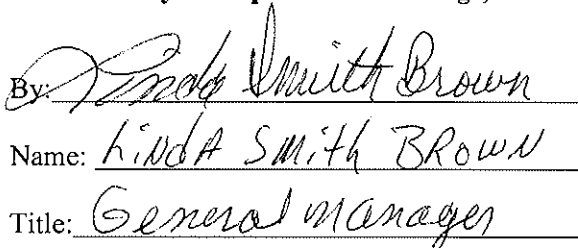 By: Linda Smith Brown
Name: LiNdA SMith BROWN
Title: General Manager